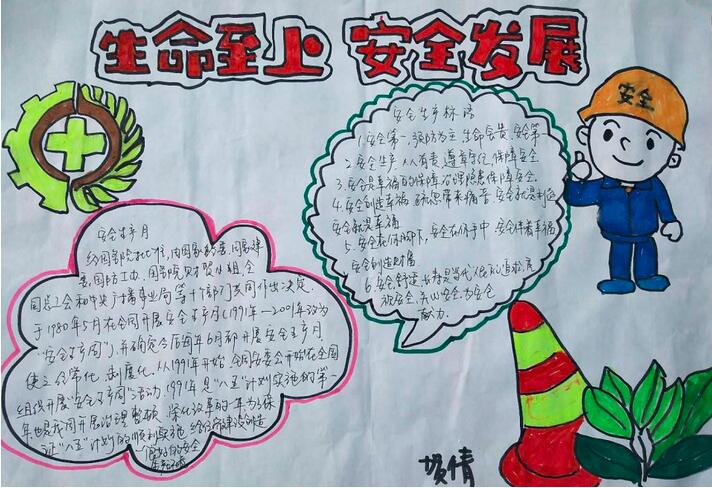 生命至上 安全发展
安全
安全生产标语
1.安全第一,预防为主,生命宝贵,安全第一
2.安全生产,人人有责,遵章守纪,保障安全
3.安全是幸福的保障,治理隐患保障安全.
4.安全创造幸福,疏忽带来痛苦,安全就是效益
安全就是幸福
5.安全在你脚下,安全在你手中,安全伴着幸福
安全创造财富
6.安全、舒适、长寿是当代人民的追求
为安全
献力.
安全生产月
经国务院批准,由国家经委、国家建
委、国防工办、国务院财贸小组、全
国总工会和中央广播事业局等十个部门共同作出决定.
于1980年5月在全国开展安全生产月(1991年—2001年改为
“安全生产周”),并确定今后每年6月都开展安全生产月
使之经常化、制度化.从1991年开始,全国安委会开始在全国
组织开展“安全生产周”活动.1991年是“八五”计划实施的第一
年也是我国开展治理整顿、深化改革的一年为了保
证“八五”计划的顺利实施
良好的安全
倩